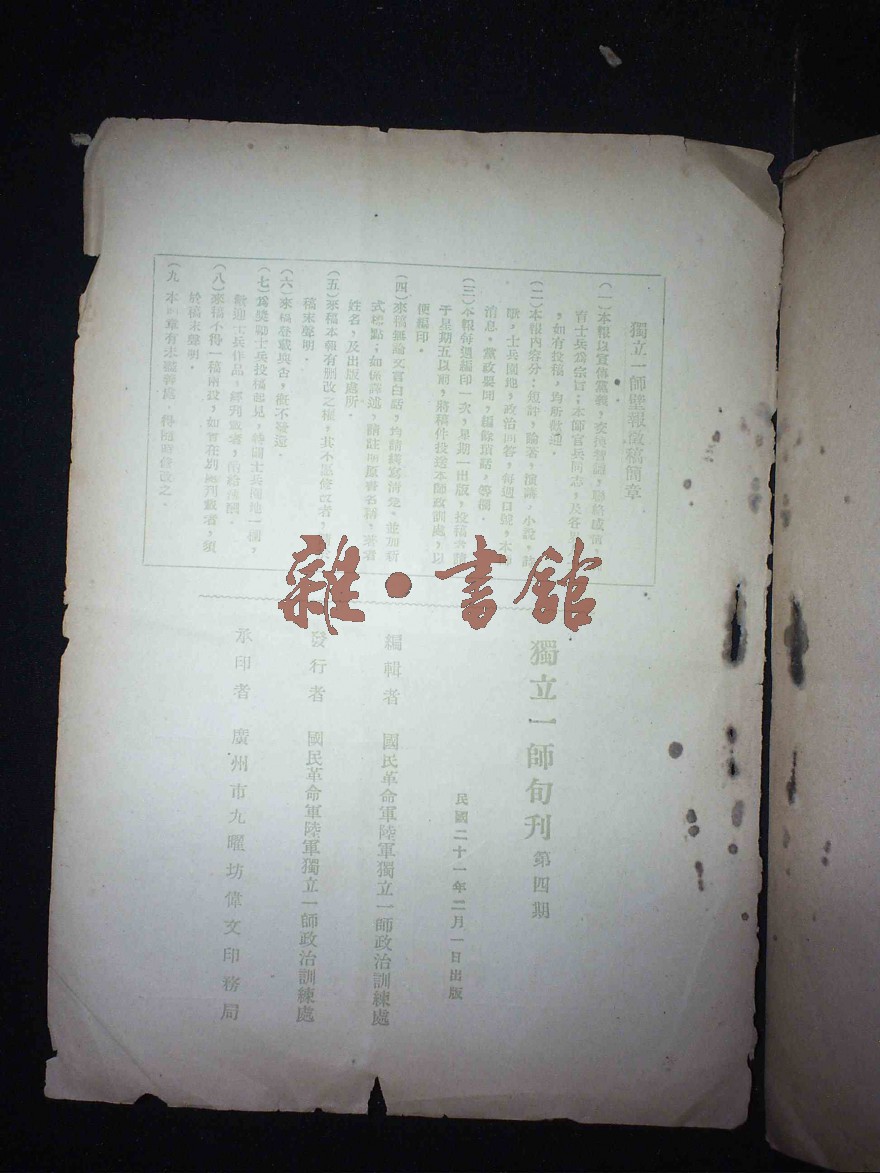 獨立一師壁報徵稿簡章
(一)本報以宣傳黨義,交換智識,聯絡感情,
育士兵爲宗旨;本師官兵同志,及各界
,如有投稿,均所歡迎.
(二)本報內容分:短評,論著,演講,小說,
,士兵園地,政治問答,每週口號,本
消息,黨政要聞,編餘閒話,等欄.
(三)本報每週編印一次,星期一出版,投稿
于星期五以前,將稿件投送本師政訓處,以
便編印.
(四)來稿無論文言白話,均請繕寫清楚,並加新
式標點;如係譯述,請註明原書名稱,著者
姓名,及出版處所.
(五)來稿本報有删改之權,其不願修改者,
稿末聲明.
(六)來稿登載與否,概不發還.
(七)爲獎勵士兵投稿起見,特闢士兵園地一欄,
歡迎士兵作品,經刊載者,酌給報酬.
(八)來稿不得一稿兩投,如曾在別處刊載者,須
於稿末聲明.
(九)本簡章有未盡善處,得隨時修改之.
雜•書館
獨立一師旬刊 第四期
民國二十一年二月一日出版
編輯者 國民革命軍陸軍獨立一師政治訓練處
發行者 國民革命軍陸軍獨立一師政治訓練處
承印者 廣州市九曜坊偉文印務局